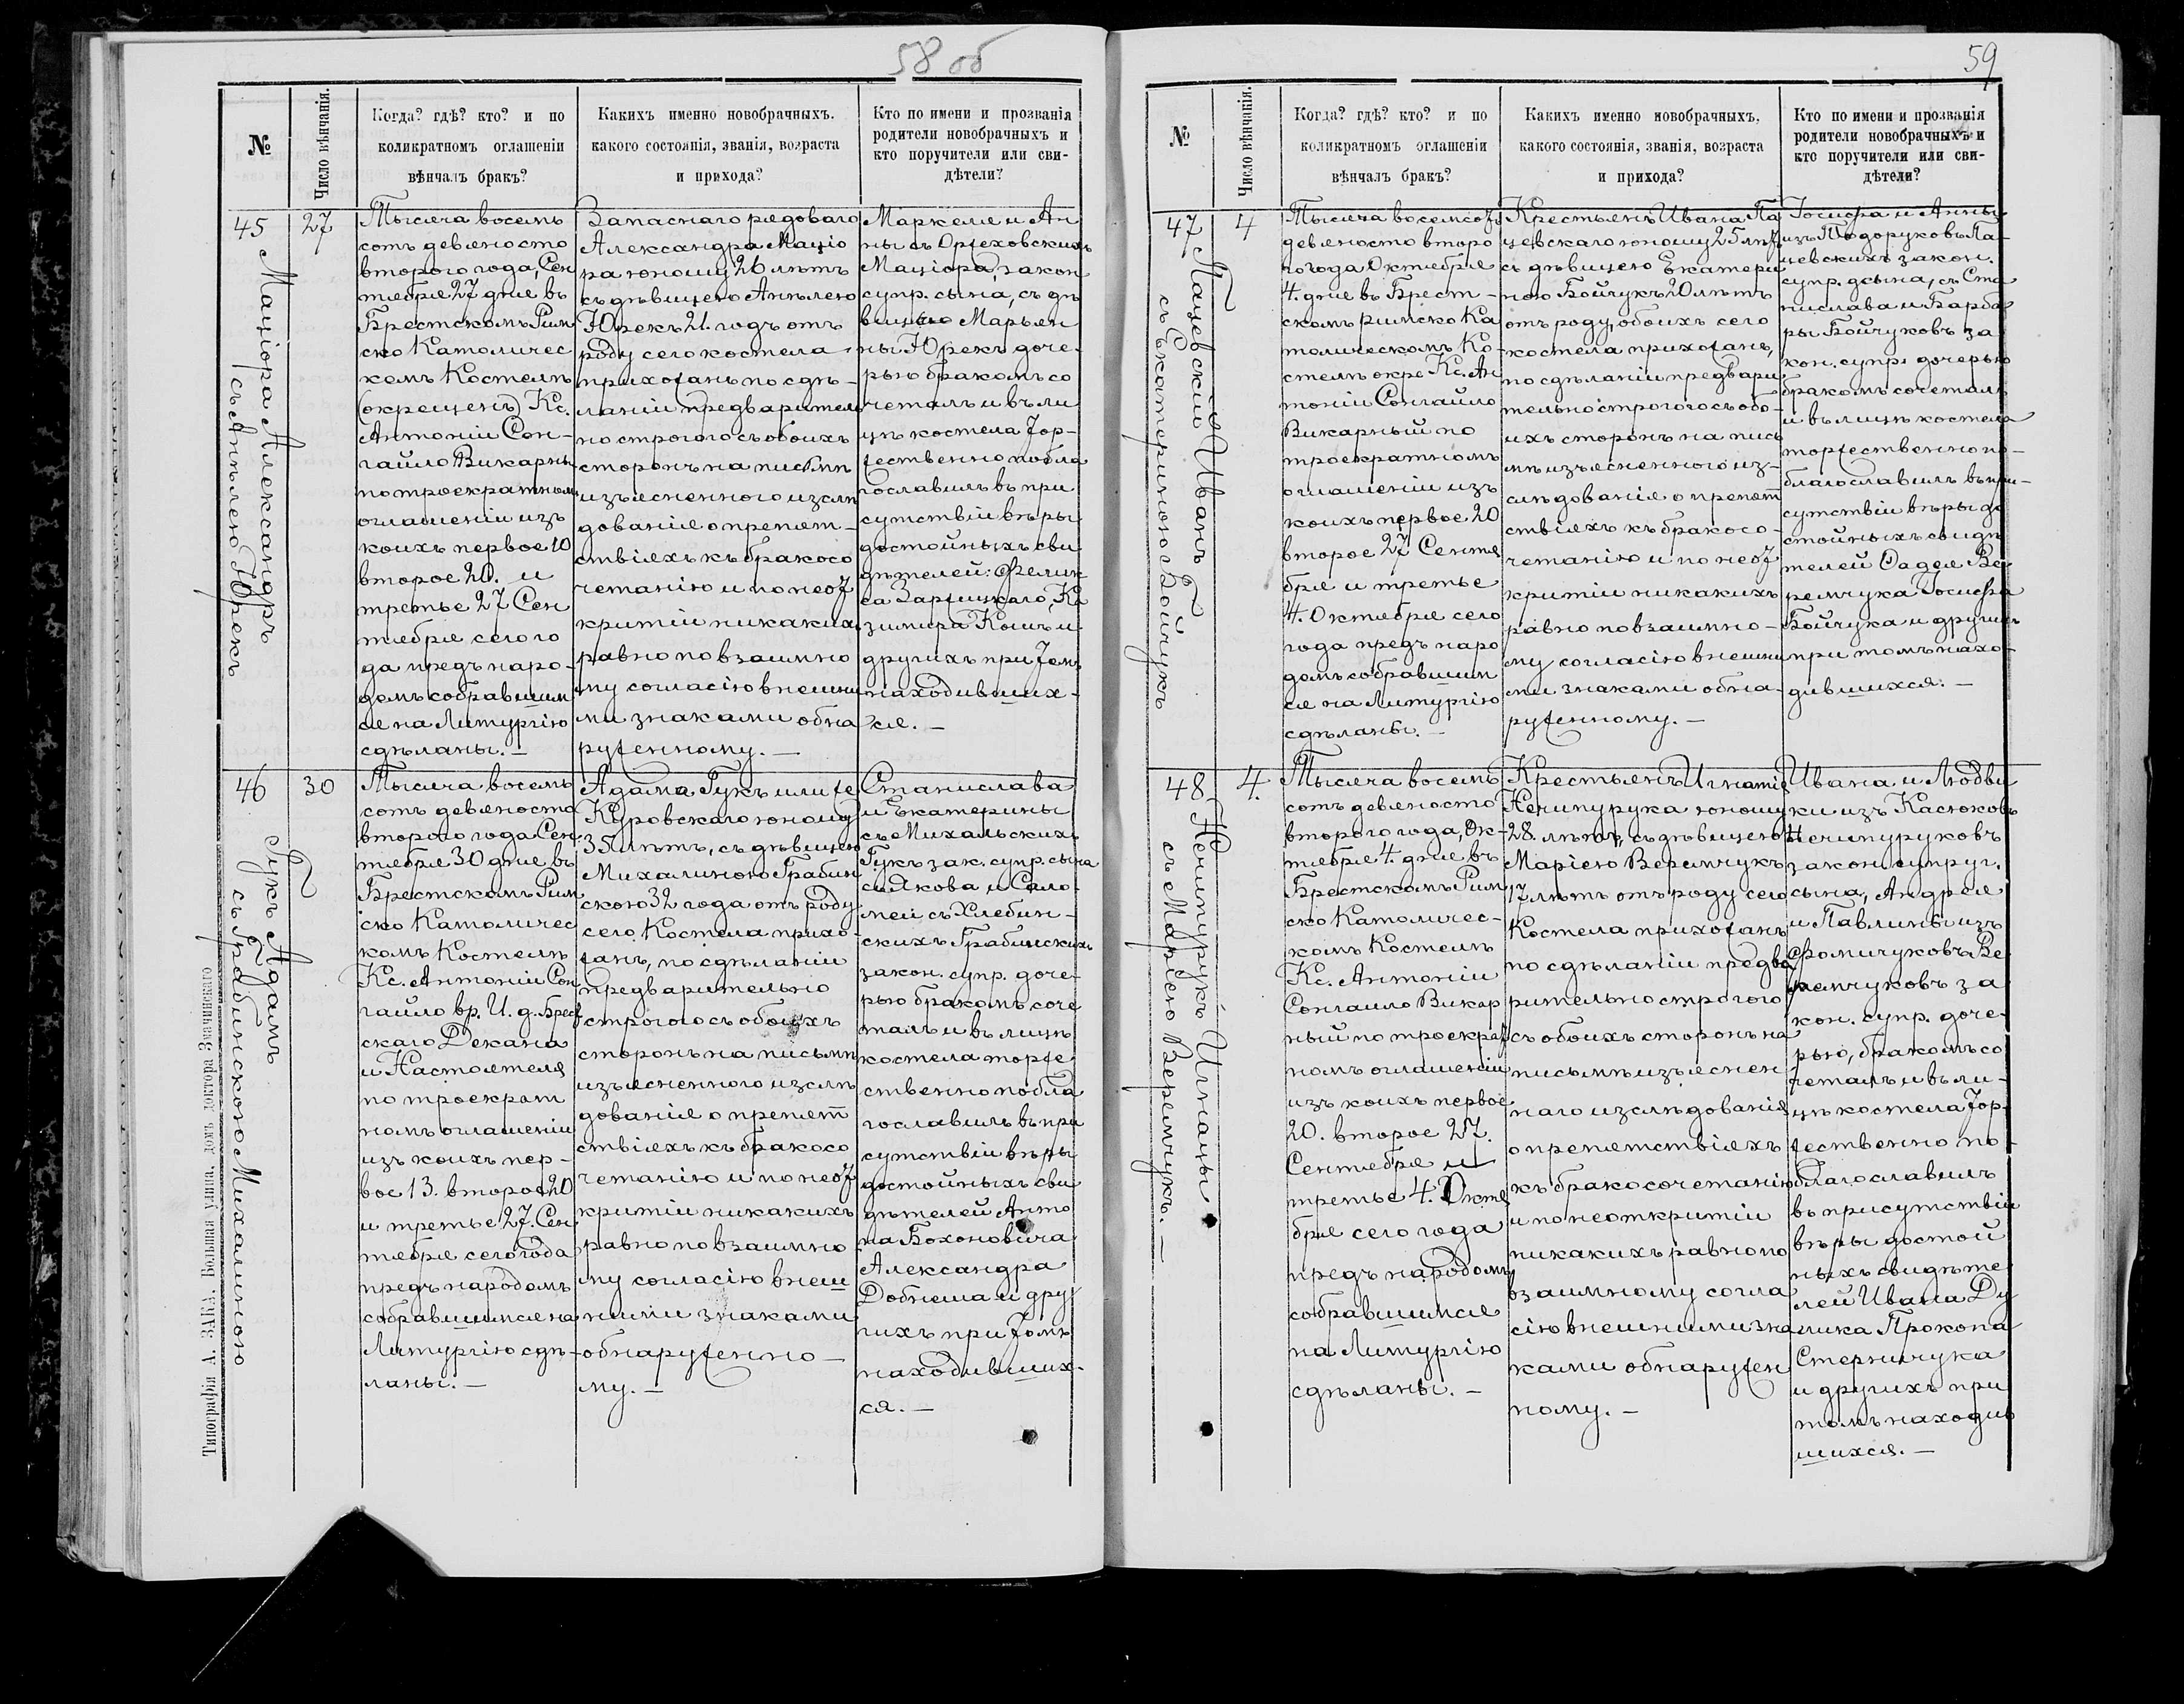 58 об
№
Число вѣнчанія.
Когда? гдѣ? кто? и по
коликратномъ оглашеніи
вѣнчалъ бракъ?
Какихъ именно новобрачныхъ.
какого состоянія, званія, возраста
и прихода?
Кто по имени и прозванія
родители новобрачныхъ и
кто поручители или сви-
дѣтели?
45
Маціора Александръ
съ Анѣлею Юрекъ
27
Тысяча восемь
сотъ девяносто
второго года, Сен
тября 27 дня въ
Брестскомъ Рим
ско Католичес
комъ Костелѣ
(окрещенъ) Кс.
Антоній Сон-
гайло Викарны
по троекратном
оглашеніи изъ
коихъ первое 10
второе 20. и
третье 27 Сен
тября сего го
да предъ наро-
домъ собравшим
ся на Литургію
сдѣланы. —
Запаснаго рядоваго
Александра Маціо
ра юношу 26 лѣтъ
съ дѣвицею Анѣлею
Юрекъ 21. годъ отъ
роду сего костела
прихожанъ по сдѣ-
ланіи предварител
но строгого съ обоихъ
сторонъ на письмѣ
изъясненного изслѣ
дованія о препят-
ствіяхъ къ бракосо
четанію и по неот
критіи никаких
равно по взаимно
му согласію внешни
ми знаками обна
руженному. —
Маркела и Ан
ны съ Орѣховскихъ
Маціора, закон
супр. сына, съ дѣ
вицею Марьян
ны Юрекъ доче-
рью бракомъ со
четалъ и въ ли
цѣ костела тор-
жественно побла
гославилъ въ при
сутствіи вѣры
достойныхъ сви
дѣтелей: Фелик
са Заржицкаго, Ка
зимира Кошъ и
другихъ при томъ
находивших-
ся. —
46
Гукъ Адамъ
съ Грабинскою Михалиною
30
Тысяча восемь
сотъ девяноста
второго года Сен
тября 30 дня въ
Брестскомъ Рим
ско Католичес
комъ Костелѣ
Кс. Антоній Сон
гайло вр. И. д. Брест
скаго Декана
и Настоятеля
по троекрат
номъ оглашеніи
изъ коихъ пер-
вое 13. второе 20
и третье 27. Сен
тября сего года
предъ народомъ
собравшимся на
Литургію сдѣ-
ланы. —
Адама Гукъ или же
Куровскаго юношу
35 лѣтъ, съ дѣвицею
Михалиною Грабин
скою 32 года отъ роду
сего Костела прихо-
жанъ, по сдѣланіи
предварительно
строгого съ обоихъ
сторонъ на письмѣ
изъясненного изслѣ
дованія о препят
ствіяхъ къ бракосо
четанію и по неот
критіи никакихъ
равно по взаимно
му согласію внеш
ними знаками
обнаруженно-
му. —
Станислава
и Екатерины
съ Михальскихъ
Гукъ зак. супр. сына
съ Якова и Сало-
меи съ Хлебин-
скихъ Грабинскихъ
закон. супр. доче-
рью бракомъ соче
талъ и въ лицѣ
костела торже
ственно побла
гославилъ въ при
сутствіи вѣры
достойныхъ сви
дѣтелей Анто
на Бохоновича
Александра
Добнеша и дру
гихъ при томъ
находивших-
ся. —
Типографія А. ЗАКА, Большая улица, домъ доктора Змачинскаго
59
№
Число вѣнчанія.
Когда? гдѣ? кто? и по
коликратномъ оглашеніи
вѣнчалъ бракъ?
Какихъ именно новобрачныхъ,
какого состоянія, званія, возраста
и прихода?
Кто по имени и прозванія
родители новобрачныхъ и
кто поручители или сви-
дѣтели?
47
Пацевскій Иванъ
съ Екатериною Бойчукъ
4
Тысяча восемсот
девяносто второ
го года Октября
4. дня въ Брест-
скомъ римско Ка
толическомъ Ко-
стелѣ окре Кс. Ан
тоній Сонгайло
Викарный по
троекратномъ
оглашеніи изъ
коихъ первое 20
второе 27 Сентя
бря и третье
4. Октября сего
года предъ наро
домъ собравшим
ся на Литургію
сдѣланы. —
Крестьянъ Ивана Па
цевскаго юношу 25 лѣт
съ дѣвицею Екатери
ною Бойчукъ 20 лѣтъ
отъ роду, обоихъ сего
костела прихожанъ,
по сдѣланіи предвари
тельно строгого съ обо-
ихъ сторонъ на пись
мѣ изъясненного из-
слѣдованія о препят
ствіяхъ къ бракосо-
четанію и по неот
критіи никакихъ
равно по взаимно-
му согласію внешни
ми знаками обна-
руженному. —
Іосифа и Анны
изъ Тодоруковъ Па-
цевскихъ закон.
супр. сына, съ Ста
нислава и Барба
ры Бойчуковъ за
кон. супр. дочерью
бракомъ сочеталъ
и въ лицѣ костела
торжественно по-
благославилъ въ при-
сутствіи вѣры до
стойныхъ свидѣ
телей Садея Ве
ремчука Іосифа
Бойчука и другихъ
при томъ нахо-
дившихся. —
48
Нечипурукъ Игнацы
съ Маріею Веремчукъ. —
4.
Тысяча восемь
сотъ девяносто
второго года, Ок-
тября 4. дня въ
Брестскомъ Рим
ско Католичес-
комъ Костелѣ
Кс. Антоній
Сонгаило Викар
ный по троекрат
номъ оглашеніи
изъ коихъ первое
20. второе 27.
Сентября и
третье 4. Октя
бря сего года
предъ народомъ
собравшимся
на Литургію
сдѣланы. —
Крестьянъ Игнатія
Нечипурука юношу
28. лѣтъ, съ дѣвицею
Маріею Веремчукъ
17 лѣтъ отъ роду сего
Костела прихожанъ
по сдѣланіи предва
рительно строгого
съ обоихъ сторонъ на
письмѣ изъяснен
наго изслѣдованія
о препятствіяхъ
къ бракосочетанію
и по неоткритіи
никакихъ равно по
взаимному согла
сію внешними зна
ками обнаружен
ному. —
Ивана и Людви
ки изъ Касюковъ
Нечипуруковъ
закон. супруг.
сына, Андрея
и Павлины изъ
Фомичуковъ Ве
ремчуковъ за
кон. супр. доче-
рью, бракомъ со
четалъ и въ ли-
цѣ костела тор-
жественно по-
благославилъ
въ присутствіи
вѣры достой
ныхъ свидѣте
лей Ивана Ду
лика Прокопа
Стерничука
и другихъ при
томъ находив
шихся. —